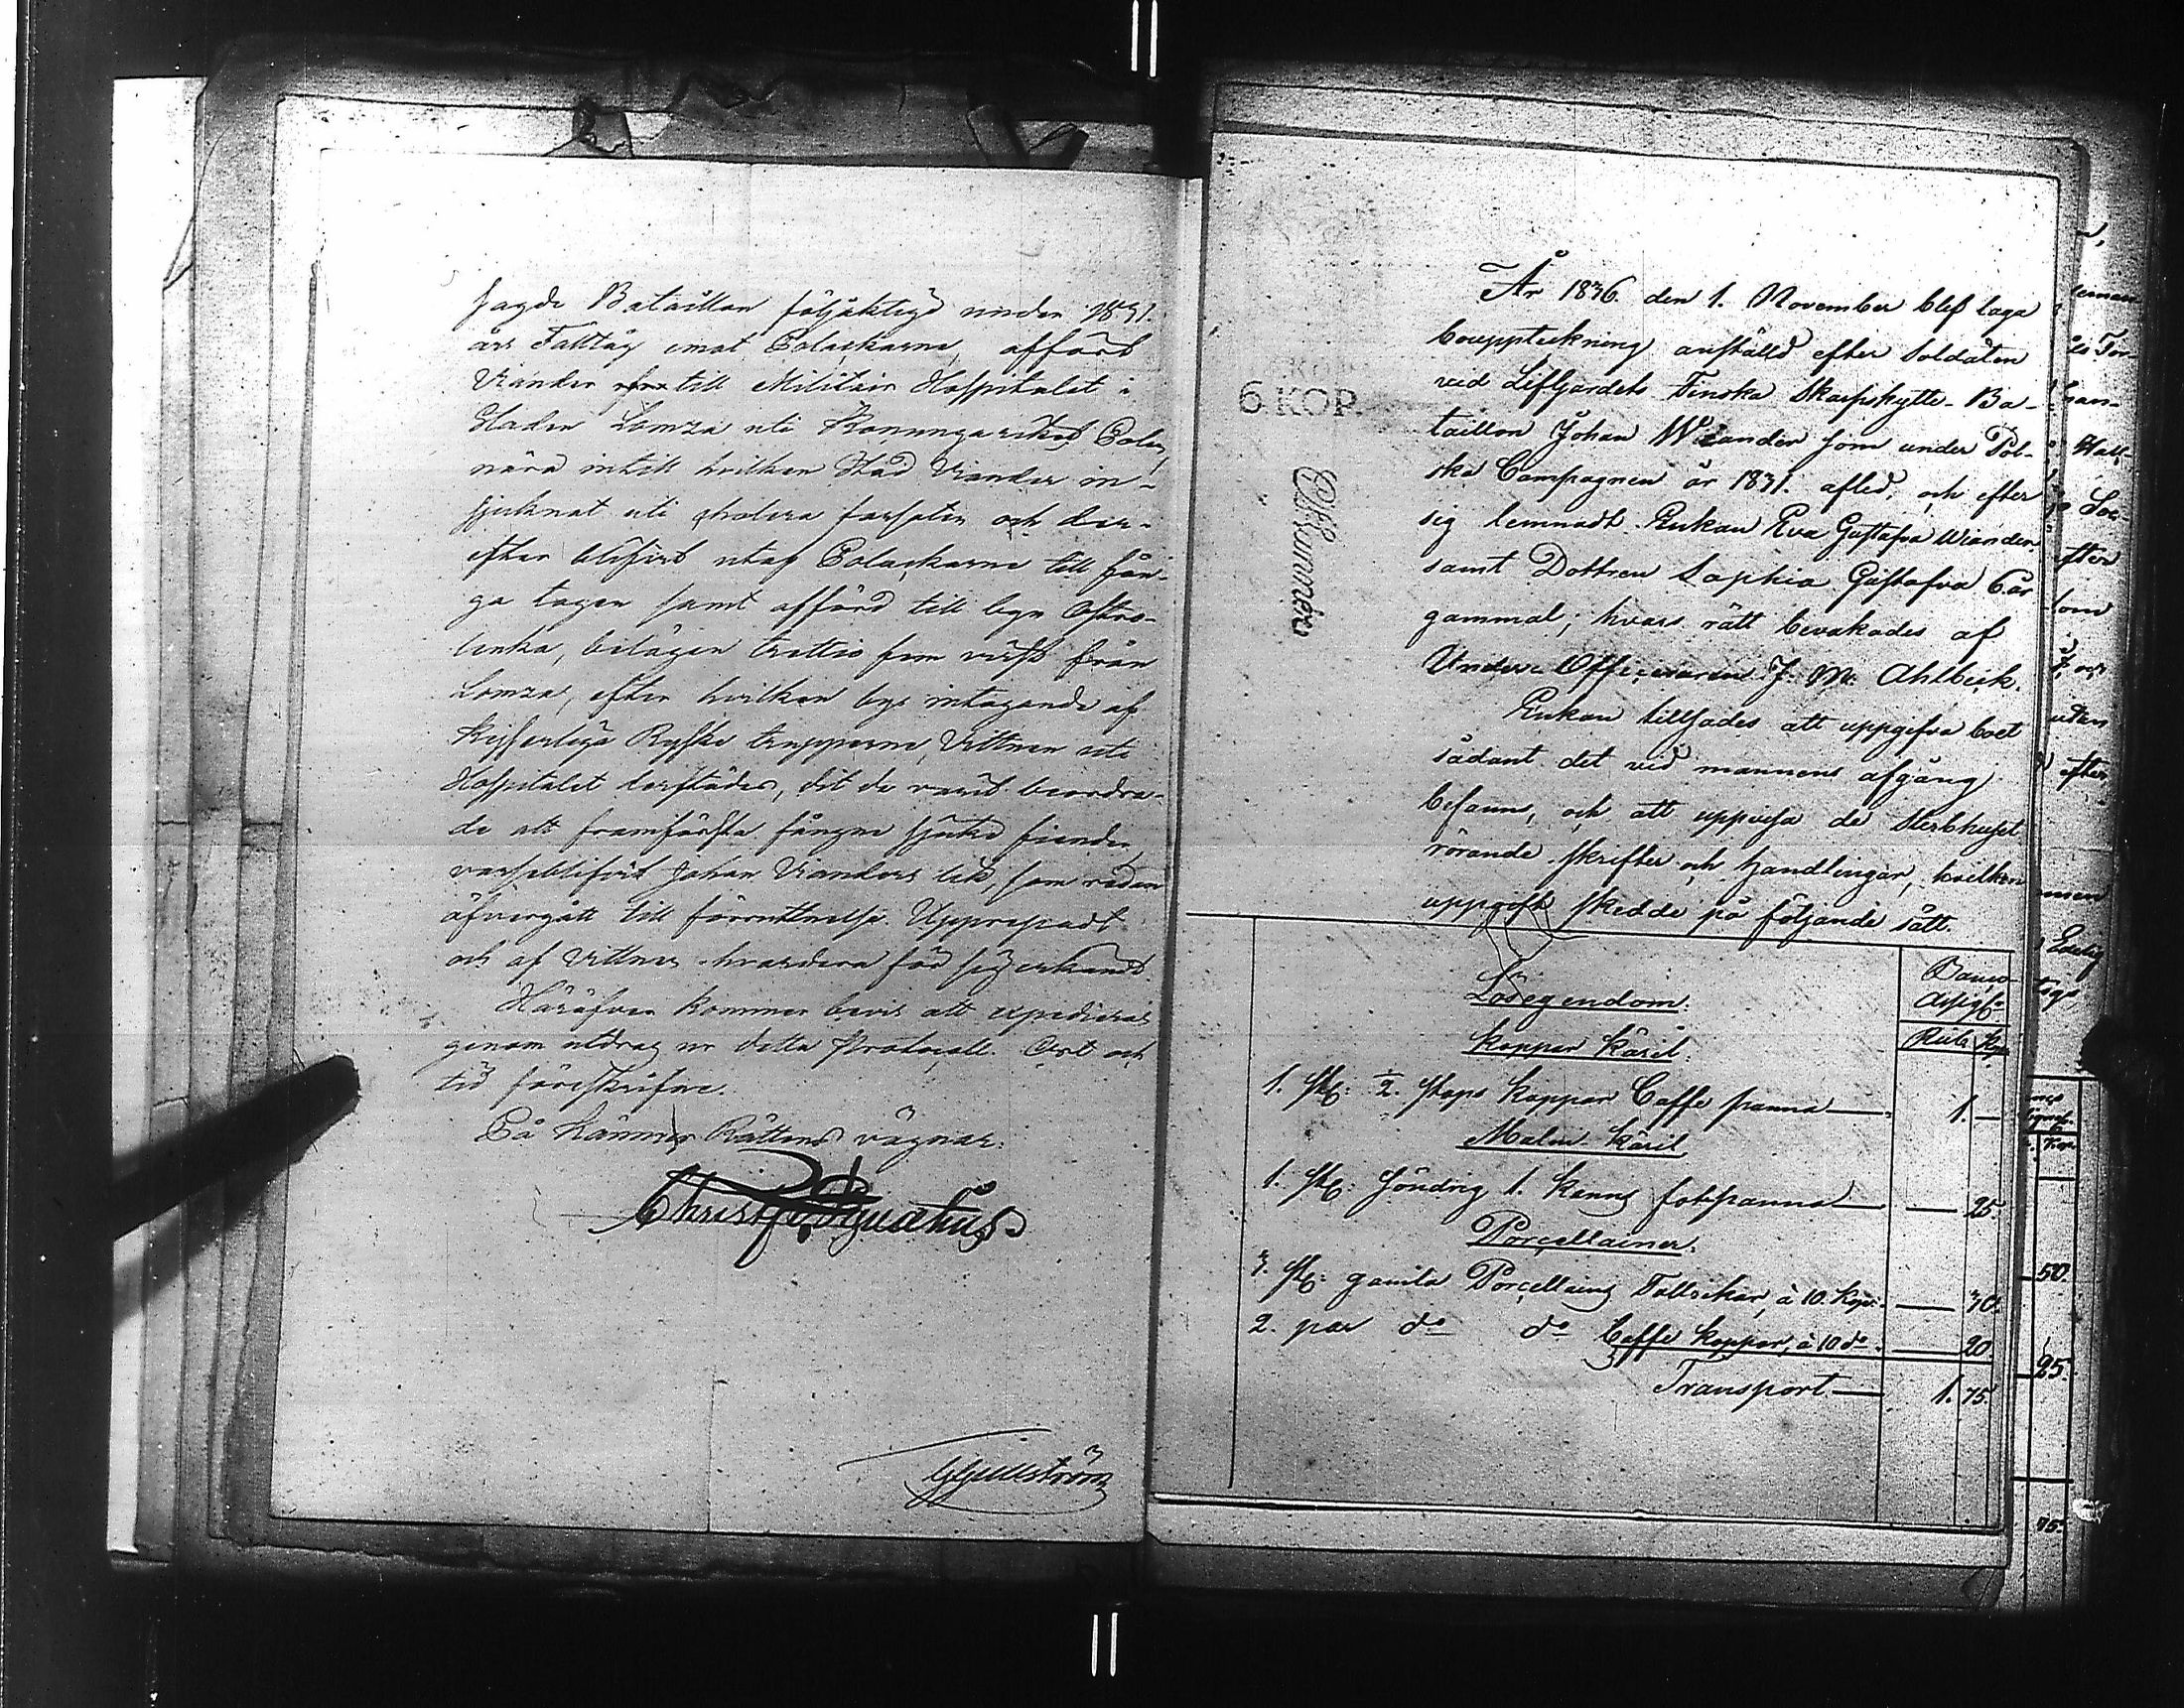 sagde Bataillon följaktligen under 1831
års Fälttåg emot Polackarne, affört
Viander till Militair Hospitalet i
Staden Lomza uti Konungariket Polen,
nära intill hvilken Stad Viander in-
sjuknat uti cholera farsoten och der-
efter blifvit utaf Polackarne till fån-
ga tagen samt afförd till byn Ostro-
lenka, belägen trettio fem verst från
Lomza, efter hvilken bys intagande af
Kejserliga Ryska trupperne, Vittnen uti
Hospitalet derstädes, dit de varit beordra-
de att framforsla fångne sjuke fiender
varseblifvit Johan Vianders lik, som redan
öfvergått till förruttnelse. Upprepadt
och af Vittnen hvardera för sig erkändt.
Häröfver kommer bevis att expedieras
genom utdrag ur detta Protocoll. Ort och
tid föreskrifne.
På Kämners Rättens vägnar:
Christf. Ignatius
Gyllström
6 KOP.
År 1836 den 1. November blef laga
bouppteckning anställd efter Soldaten
vid Lifgardets Finska Skarpskytte-Ba-
taillon Johan Wiander som under Pol-
ska Campagnen år 1831. afled, och efter
sig lemnadt Enkan Eva Gustafva Wiander
samt Dottren Sophia Gustafva 6 år
gammal; hvars rätt bevakades af
Under-Officeraren J. M. Ahlbeck.
Enkan tillsades att uppgifva boet
sådant det vid mannens afgång
befanns, och att uppvisa de Sterbhuset
rörande skrifter och handlingar, hvilken
uppgift skedde på följande sätt.
Lösegendom. Banco Assign:
Koppar Käril. Rub. Kop.
1. St: 1/2. Stops Koppar Caffe panna — 1. —
Malm Käril
1. St: söndrig 1. Kanns fotpanna — 25.
Porcellainer.
3. St: gamla Porcellains Tallrikar, à 10. Kop: — 30.
2. par do do Caffe koppar, à 10 do — 20.
Transport — 1. 75.